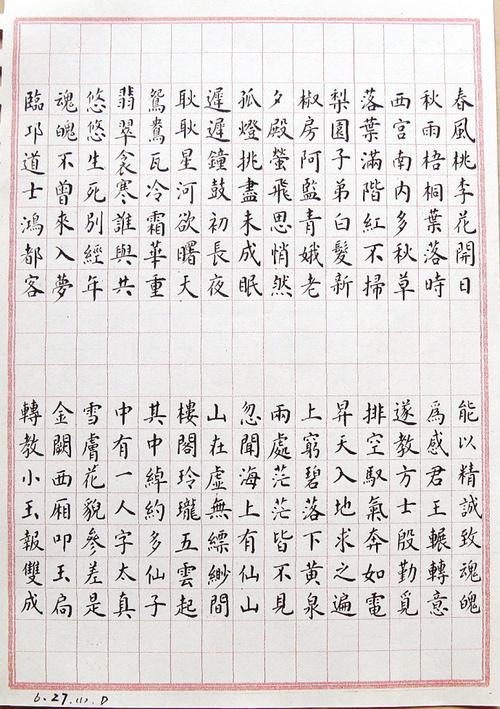 春風桃李花開日
秋雨梧桐葉落時
西宮南内多秋草
落葉滿階紅不掃
梨園子弟白髮新
椒房阿監青娥老
夕殿螢飛思悄然
孤燈挑盡未成眠
遲遲鐘鼓初長夜
耿耿星河欲曙天
鴛鴦瓦冷霜華重
翡翠衾寒誰與共
悠悠生死別經年
魂魄不曾來入夢
臨邛道士鴻都客
能以精誠致魂魄
爲感君王輾轉意
遂教方士殷勤覓
排空馭氣奔如電
昇天入地求之遍
上窮碧落下黃泉
兩處茫茫皆不見
忽聞海上有仙山
山在虛無縹緲間
樓閣玲瓏五雲起
其中綽約多仙子
中有一人字太真
雪膚花貌參差是
金闕西廂叩玉扃
轉教小玉報雙成
6.27.(1).D